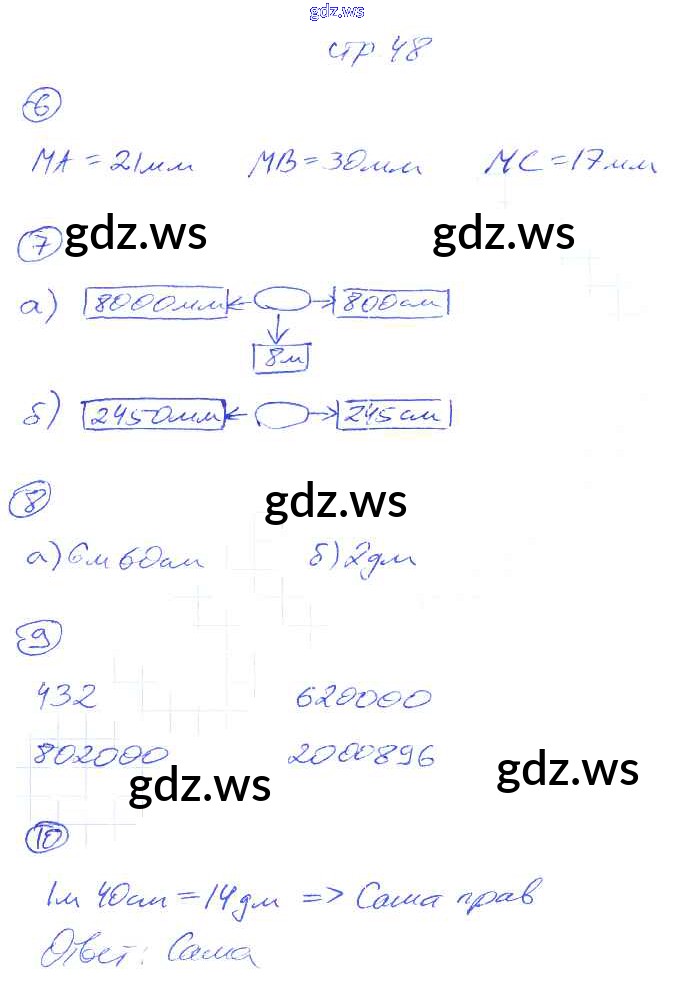 gdz.ws
стр 48
6
МА = 21мм МВ = 30мм МС = 17мм
7 gdz.ws gdz.ws
а) 8000мм 800см
8м
б) 2450мм 245см
8 gdz.ws
а) 6м 60см б) 2дм
9
432 620000
802000 2000896
gdz.ws gdz.ws
10
1м 40см = 14дм => Саша прав
Ответ: Саша